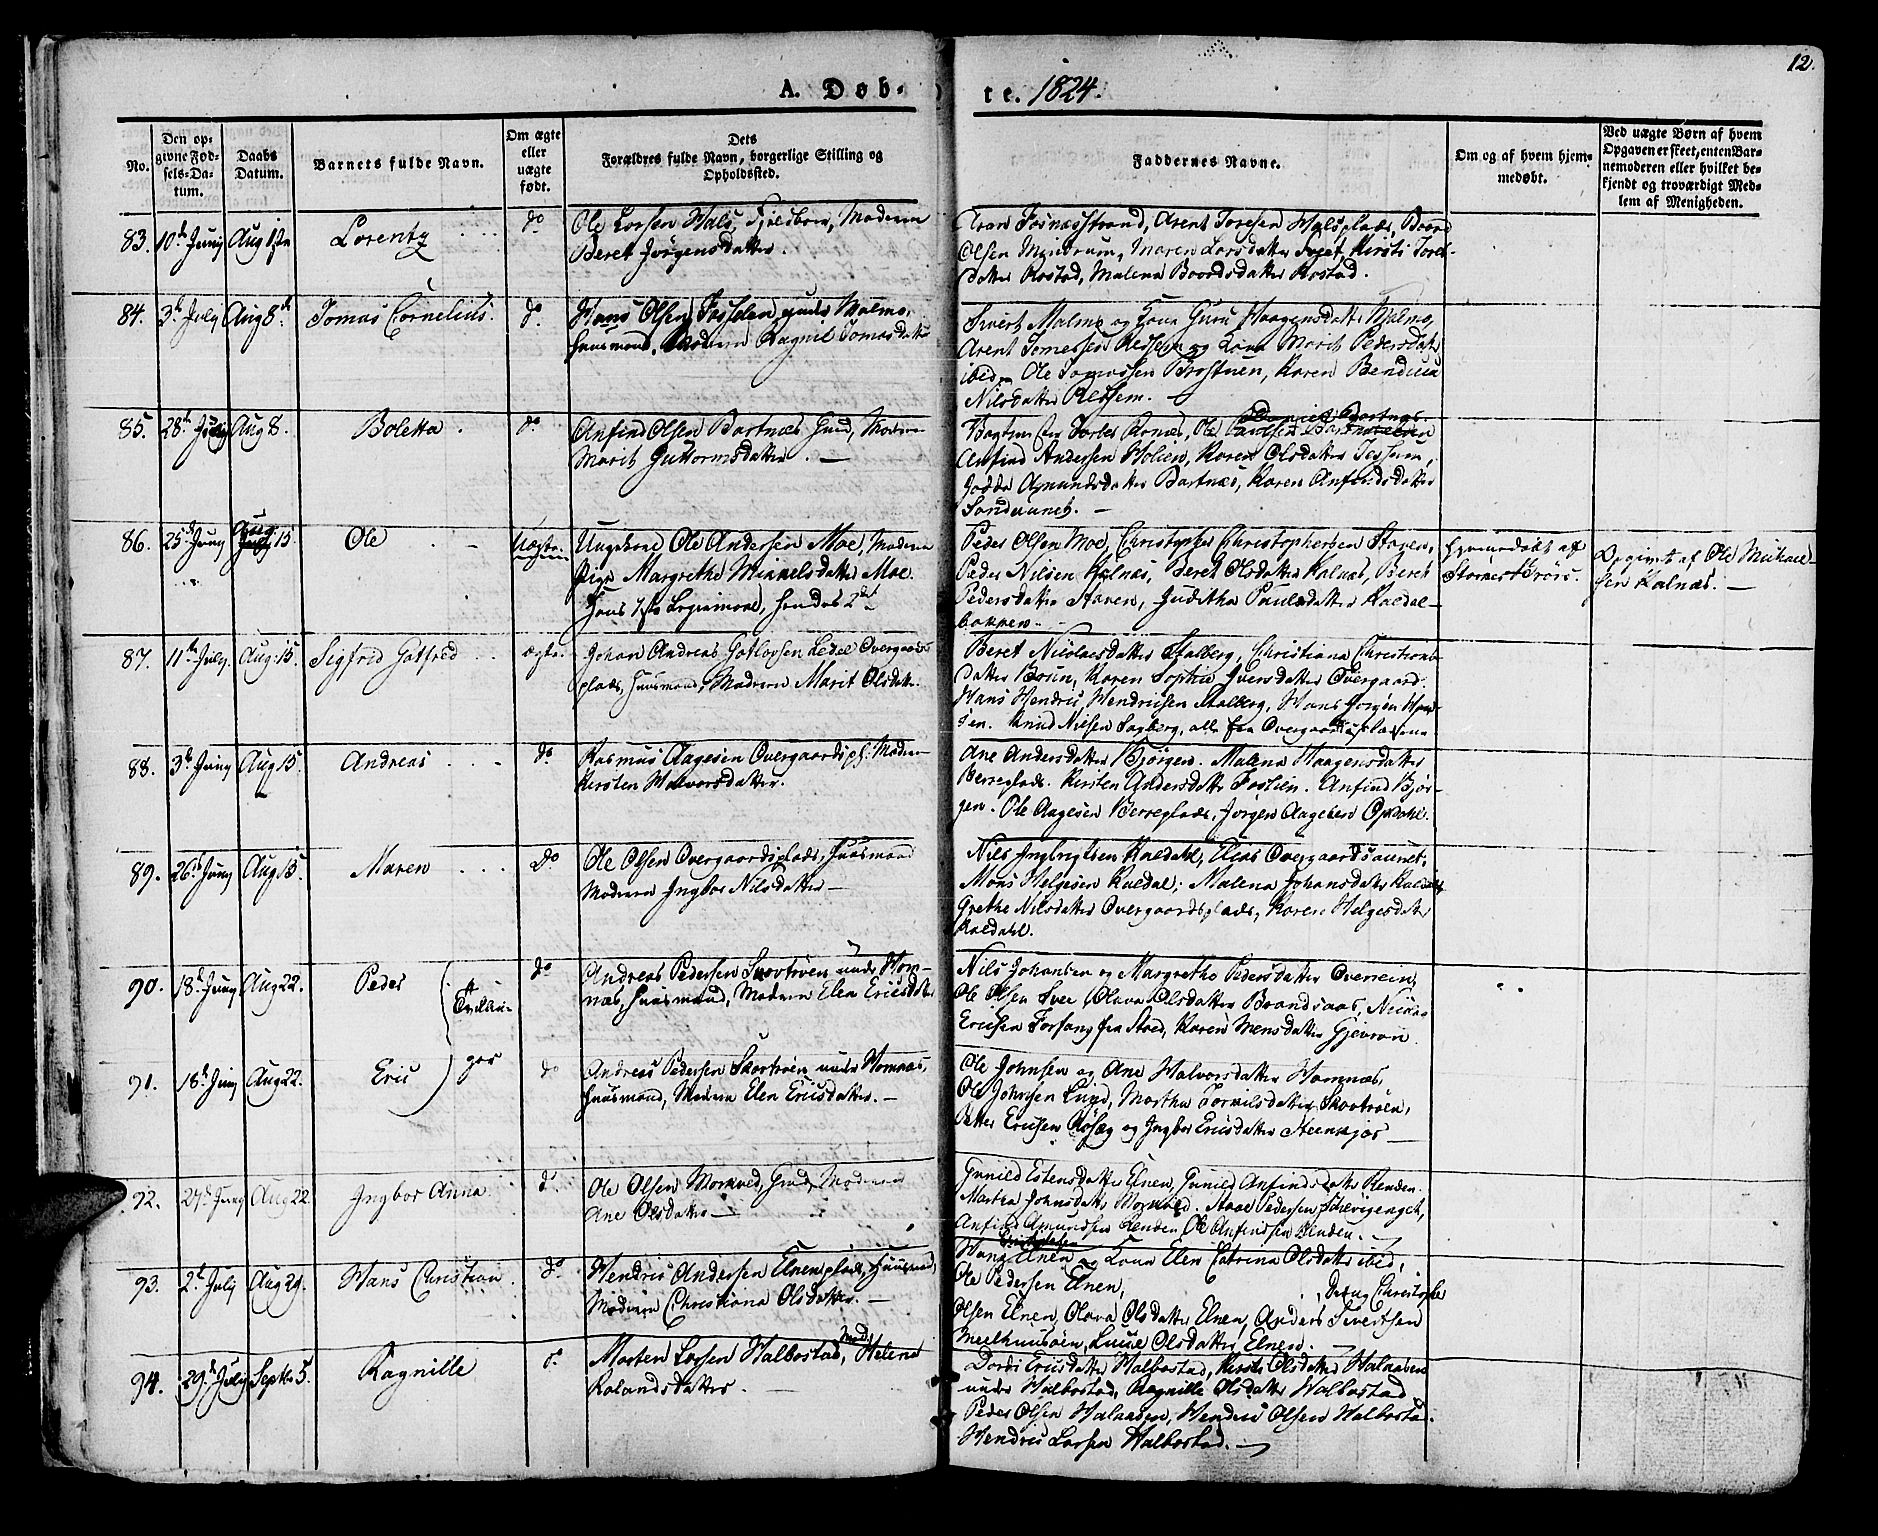 12.
A. Døb-
te. 1824.
No.
Den op-
givne Fød-
sels-Da-
tum.
Daabs
Datum.
Barnets fulde Navn.
Om ægte
eller
uægte
født.
Dets
Forældres fulde Navn, borgerlige Stilling og
Opholdssted.
Faddernes Navne.
Om og af hvem hjem-
medøbt.
Ved uægte Børn af hvem
Opgaven er skeet, enten Bar-
nemoderen eller hvilket be-
kjendt og troværdigt Med-
lem af Menigheden.
83. 10de Juny Aug 1ste Lorentz do
Ole Larsen Hals, Fjeldbore, Moderen
Beret Jørgensdatter.
Fosnæsstrand, Arent Toresen Halsplads, Baard
Olsen Mindrum, Maren Larsdatter Kirsti Tores-
datter Rostad, Malena Baardsdatter Rostad.
84. 3de July Aug 8de Tomas Cornelius. do.
Hans Olsen Fossden under Malmo,
Huusmand, Moderen Ragnil Tomasdatter
Sivert Malmo og Kona Guru Haagensdatter Malmo,
Arent Tomessen Ressem og Kona Marit Pedersdatter
ibid, Ole Tomassen Brostuen, Karen Bendicta
Nilsdatter Ressem.
85. 28de July Aug 8. Boletta do
Anfind Olsen Bartnæs Gaard, Moderen
Marit Guttormsdatter.
Torber Rones, Ole Daniel Bartnes
Anfind Andersen Holien, Karen Olsdatter Jessem,
Amundsdatter Bartnæs, Karen Anfindsdatter
Sandaunet.
86. 25de Juny Aug 15 Ole Uægte
Ungkarl Ole Andersen Moe, Moderen
Pige Margrethe Mikkelsdatter Moe.
Hans 1ste Leiermaal, hendes 2det
Peder Olsen Moe, Christopher Christophersen Staven,
Peder Nilsen Kalnæs, Beret Olsdatter Kalnæs, Beret
Pedersdatter Staven, Juditha Paulsdatter Kaldal-
bakken.
Hjemmedøbt af
Opgivet af Ole Mikael-
sen Kalnæs.
87. 11te July. Aug. 15. Sigfrid Gotfred ægte.
Johan Andreas Gotlovsen Ledel Overgaards
plads, Huusmand, Moderen Marit Olsdatter.
Beret Nicolaesdatter Stalberg, Christiana Christians-
datter Brun, Karen Sophie Iversdatter Overgaard.
Hans Hendric Hendricsen Stalberg, Hans Jørgen
sen. Knud Nilsen Sagberg, alle fra Overgaardsplassene
88. 3de Juny Aug 15 Andreas do
Rasmus Aagesen Overgaardspl: Moderen
Kirsten Halvorsdatter.
Ane Andersdatter Bjørgen. Malena Haagensdatter
Berreplads. Kirsten Andersdatter Foslien. Anfind Bjør-
gen. Ole Aagesen Berreplads, Jørgen Aagesen Opdahl.
89. 26de Juny Aug 15. Maren do
Ole Olsen Overgaardsplads, Huusmand
Moderen Ingbor Nilsdatter
Nils Ingbrigtsen Kaldahl, Elias Overgaardsaunet,
Mons Helgesen Kaldal, Malena Johansdatter Kaldahl
Grethe Nilsdatter Overgaardsplads, Karen Helgesdatter
Kaldahl.
90. 18de Juny Aug 22. Peder do
Tvillin-
ger
Andreas Pedersen Skovtrøen under Hom-
næs, Huusmand, Moderen Elen Ericsdatter
Nils Johansen og Margrethe Pedersdatter Overrein,
Ole Olsen Svee, Olava Olsdatter Brandsaas, Nicolai
Ericsen Forfang fra Stod, Karen Monsdatter Gjevran.
91. 18de Juny Aug 22. Eric do
Andreas Pedersen Skovtrøen under Homnæs,
Huusmand, Moderen Elen Ericsdatter.
Ole Johnsen og Ane Halvorsdatter Homnæs,
Ole Johnsen Lund, Martha Torkilsdatter Skovtrøen,
Petter Ericsen Røsæg og Ingbor Ericsdatter Steenkjær
92. 27de Juny Aug 22 Ingbor Anna do
Ole Olsen Morkved, Gaard, Moderen
Ane Olsdatter
Gunild Estensdatter Elnen, Gunild Anfindsdatter Kenden
Martha Johnsdatter Morkved. Aage Pedersen Skeviigengch,
Anfind Amundsen Kenden Ole Anfindsen Kenden.
93. 2de July Aug 29. Hans Christian do
Hendric Andersen Elnenplads, Huusmand,
Moderen Christiana Olsdatter.
Hans Elnen og Kona Elen Catrina Olsdatter ibid,
Ole Pedersen Elnen, Christopher
Olsen Elnen, Olava Olsdatter Elnen, Anders Sivertsen
Meelhuusøien, Lucie Olsdatter Elnen.
94. 29de July Septbr 5. Ragnille do.
Morten Larsen Halbostad, Mod. Helena
Rolandsdatter.
Dordi Ericsdatter Halbostad, Kirsti Olsdatter Halaasen
under Halbostad, Ragnille Olsdatter Halbostad
Peder Olsen Halaasen, Hendric Olsen Halbostad.
Hendric Larsen Halbostad.